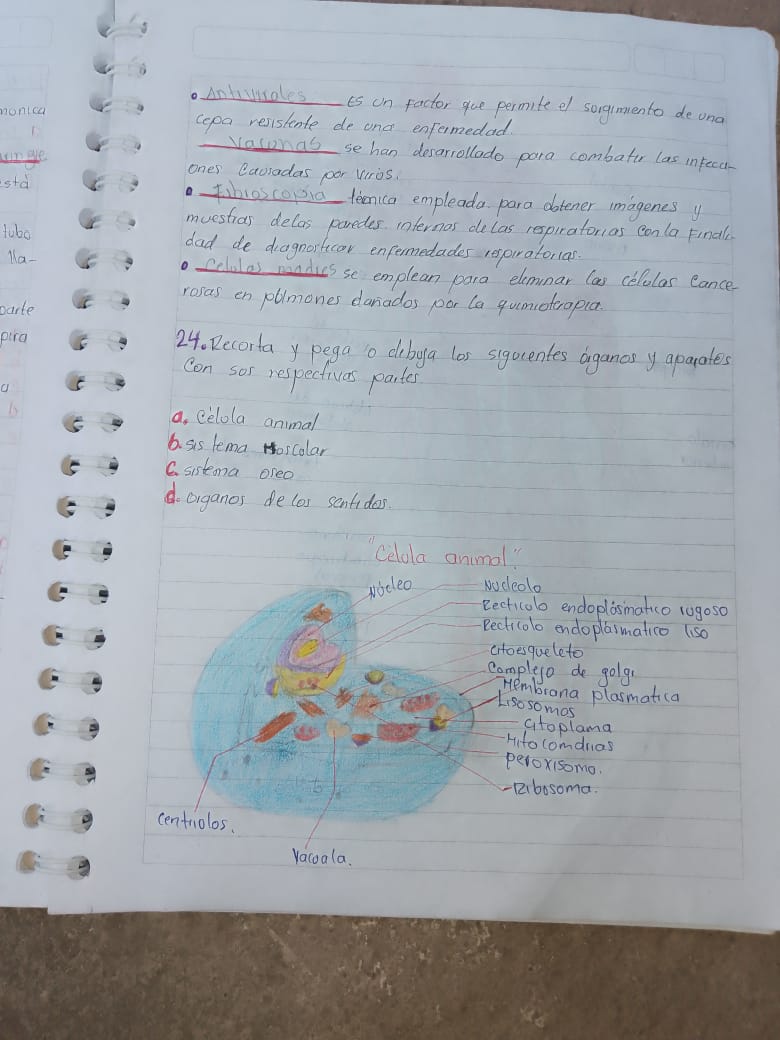 monica
está
tubo
lla-
parte
pira
a
• Antivirales Es un factor que permite el surgimiento de una
cepa resistente de una enfermedad.
Vacunas se han desarrollado para combatir las infecci-
ones Causadas por virus.
• Fibroscopia técnica empleada para obtener imágenes y
muestras delas paredes internas delas respiratorias con la Finali-
dad de diagnosticar enfermedades respiratorias.
• Celulas madres se emplean para eleminar las células Cance-
rosas en pulmones dañados por la quimioterapia.
24. Recorta y pega o dibuja los siguientes órganos y aparatos
Con sus respectivas partes
a. Célula animal
b. sistema Muscular
c. sistema oseo
d. organos de los sentidos.
"Célula animal"
Núcleo
Nucleolo
Recticulo endoplásmatico rugoso
Recticulo endoplasmatico liso
citoesqueleto
Complejo de golgi
Membrana plasmatica
Lisosomos
Citoplama
Mitocomdrias
Peroxisomo.
Ribosoma.
Centriolos.
Vacuala.